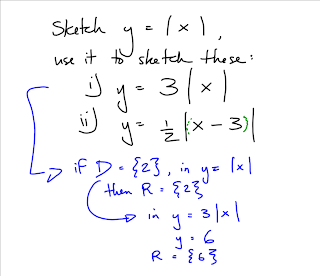 Sketch y = |x|,
use it to sketch these:
i) y = 3|x|
ii) y = 1/2|(x - 3)|
if D = {2}, in y = |x|
then R = {2}
in y = 3|x|
y = 6
R = {6}